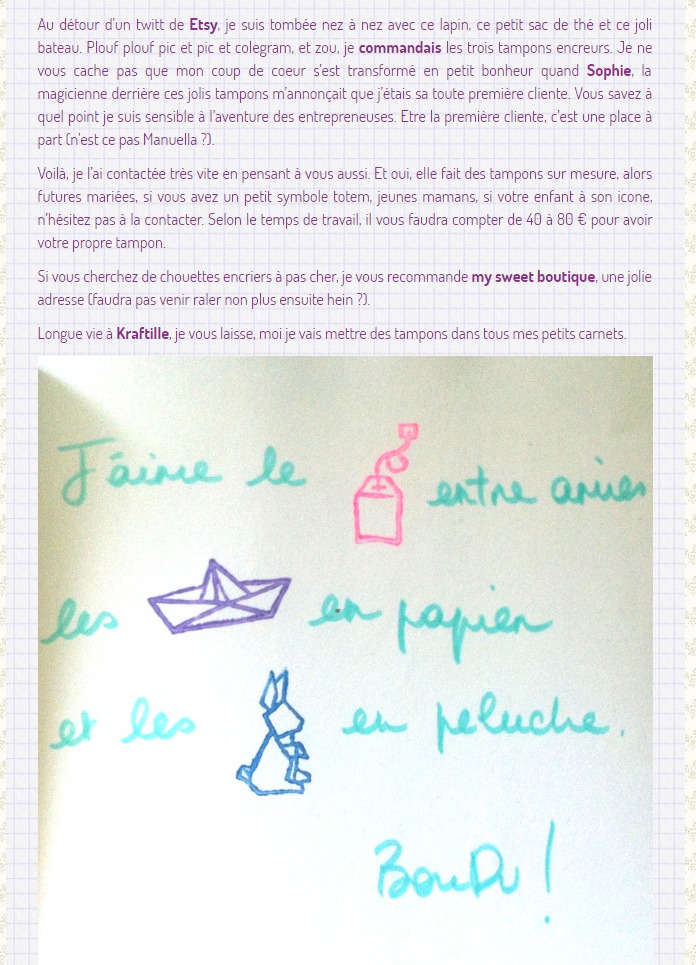 Au détour d'un twitt de Etsy, je suis tombée nez à nez avec ce lapin, ce petit sac de thé et ce joli
bateau. Plouf plouf pic et pic et colegram, et zou, je commandais les trois tampons encreurs. Je ne
vous cache pas que mon coup de coeur s'est transformé en petit bonheur quand Sophie, la
magicienne derrière ces jolis tampons m'annonçait que j'étais sa toute première cliente. Vous savez à
quel point je suis sensible à l'aventure des entrepreneuses. Etre la première cliente, c'est une place à
part (n'est ce pas Manuella ?).
Voilà, je l'ai contactée très vite en pensant à vous aussi. Et oui, elle fait des tampons sur mesure, alors
futures mariées, si vous avez un petit symbole totem, jeunes mamans, si votre enfant à son icone,
n'hésitez pas à la contacter. Selon le temps de travail, il vous faudra compter de 40 à 80 € pour avoir
votre propre tampon.
Si vous cherchez de chouettes encriers à pas cher, je vous recommande my sweet boutique, une jolie
adresse (faudra pas venir raler non plus ensuite hein ?).
Longue vie à Kraftille, je vous laisse, moi je vais mettre des tampons dans tous mes petits carnets.
J'aime le entre amies
les en papier
et les en peluche.
BouDu !